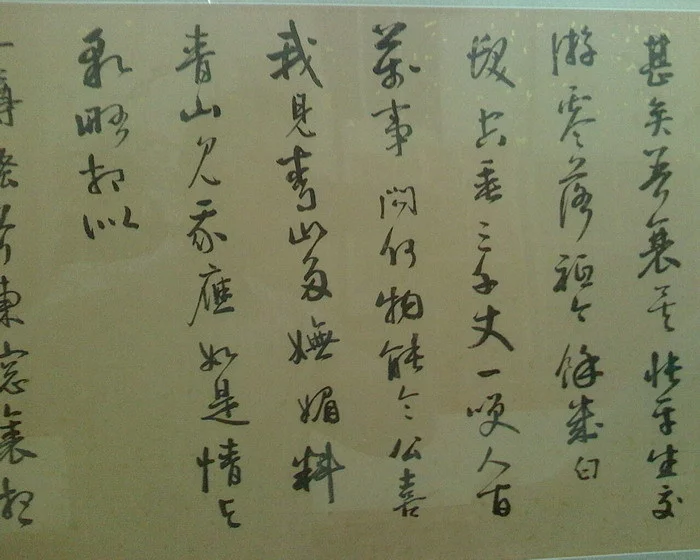 甚矣吾衰矣悵平生交
游零落祇今餘幾白
髮空垂三千丈一咲人間
萬事問何物能令公喜
我見青山多嫵媚料
青山見我應如是情与
貌略相似
一尊搔首東窗裏想